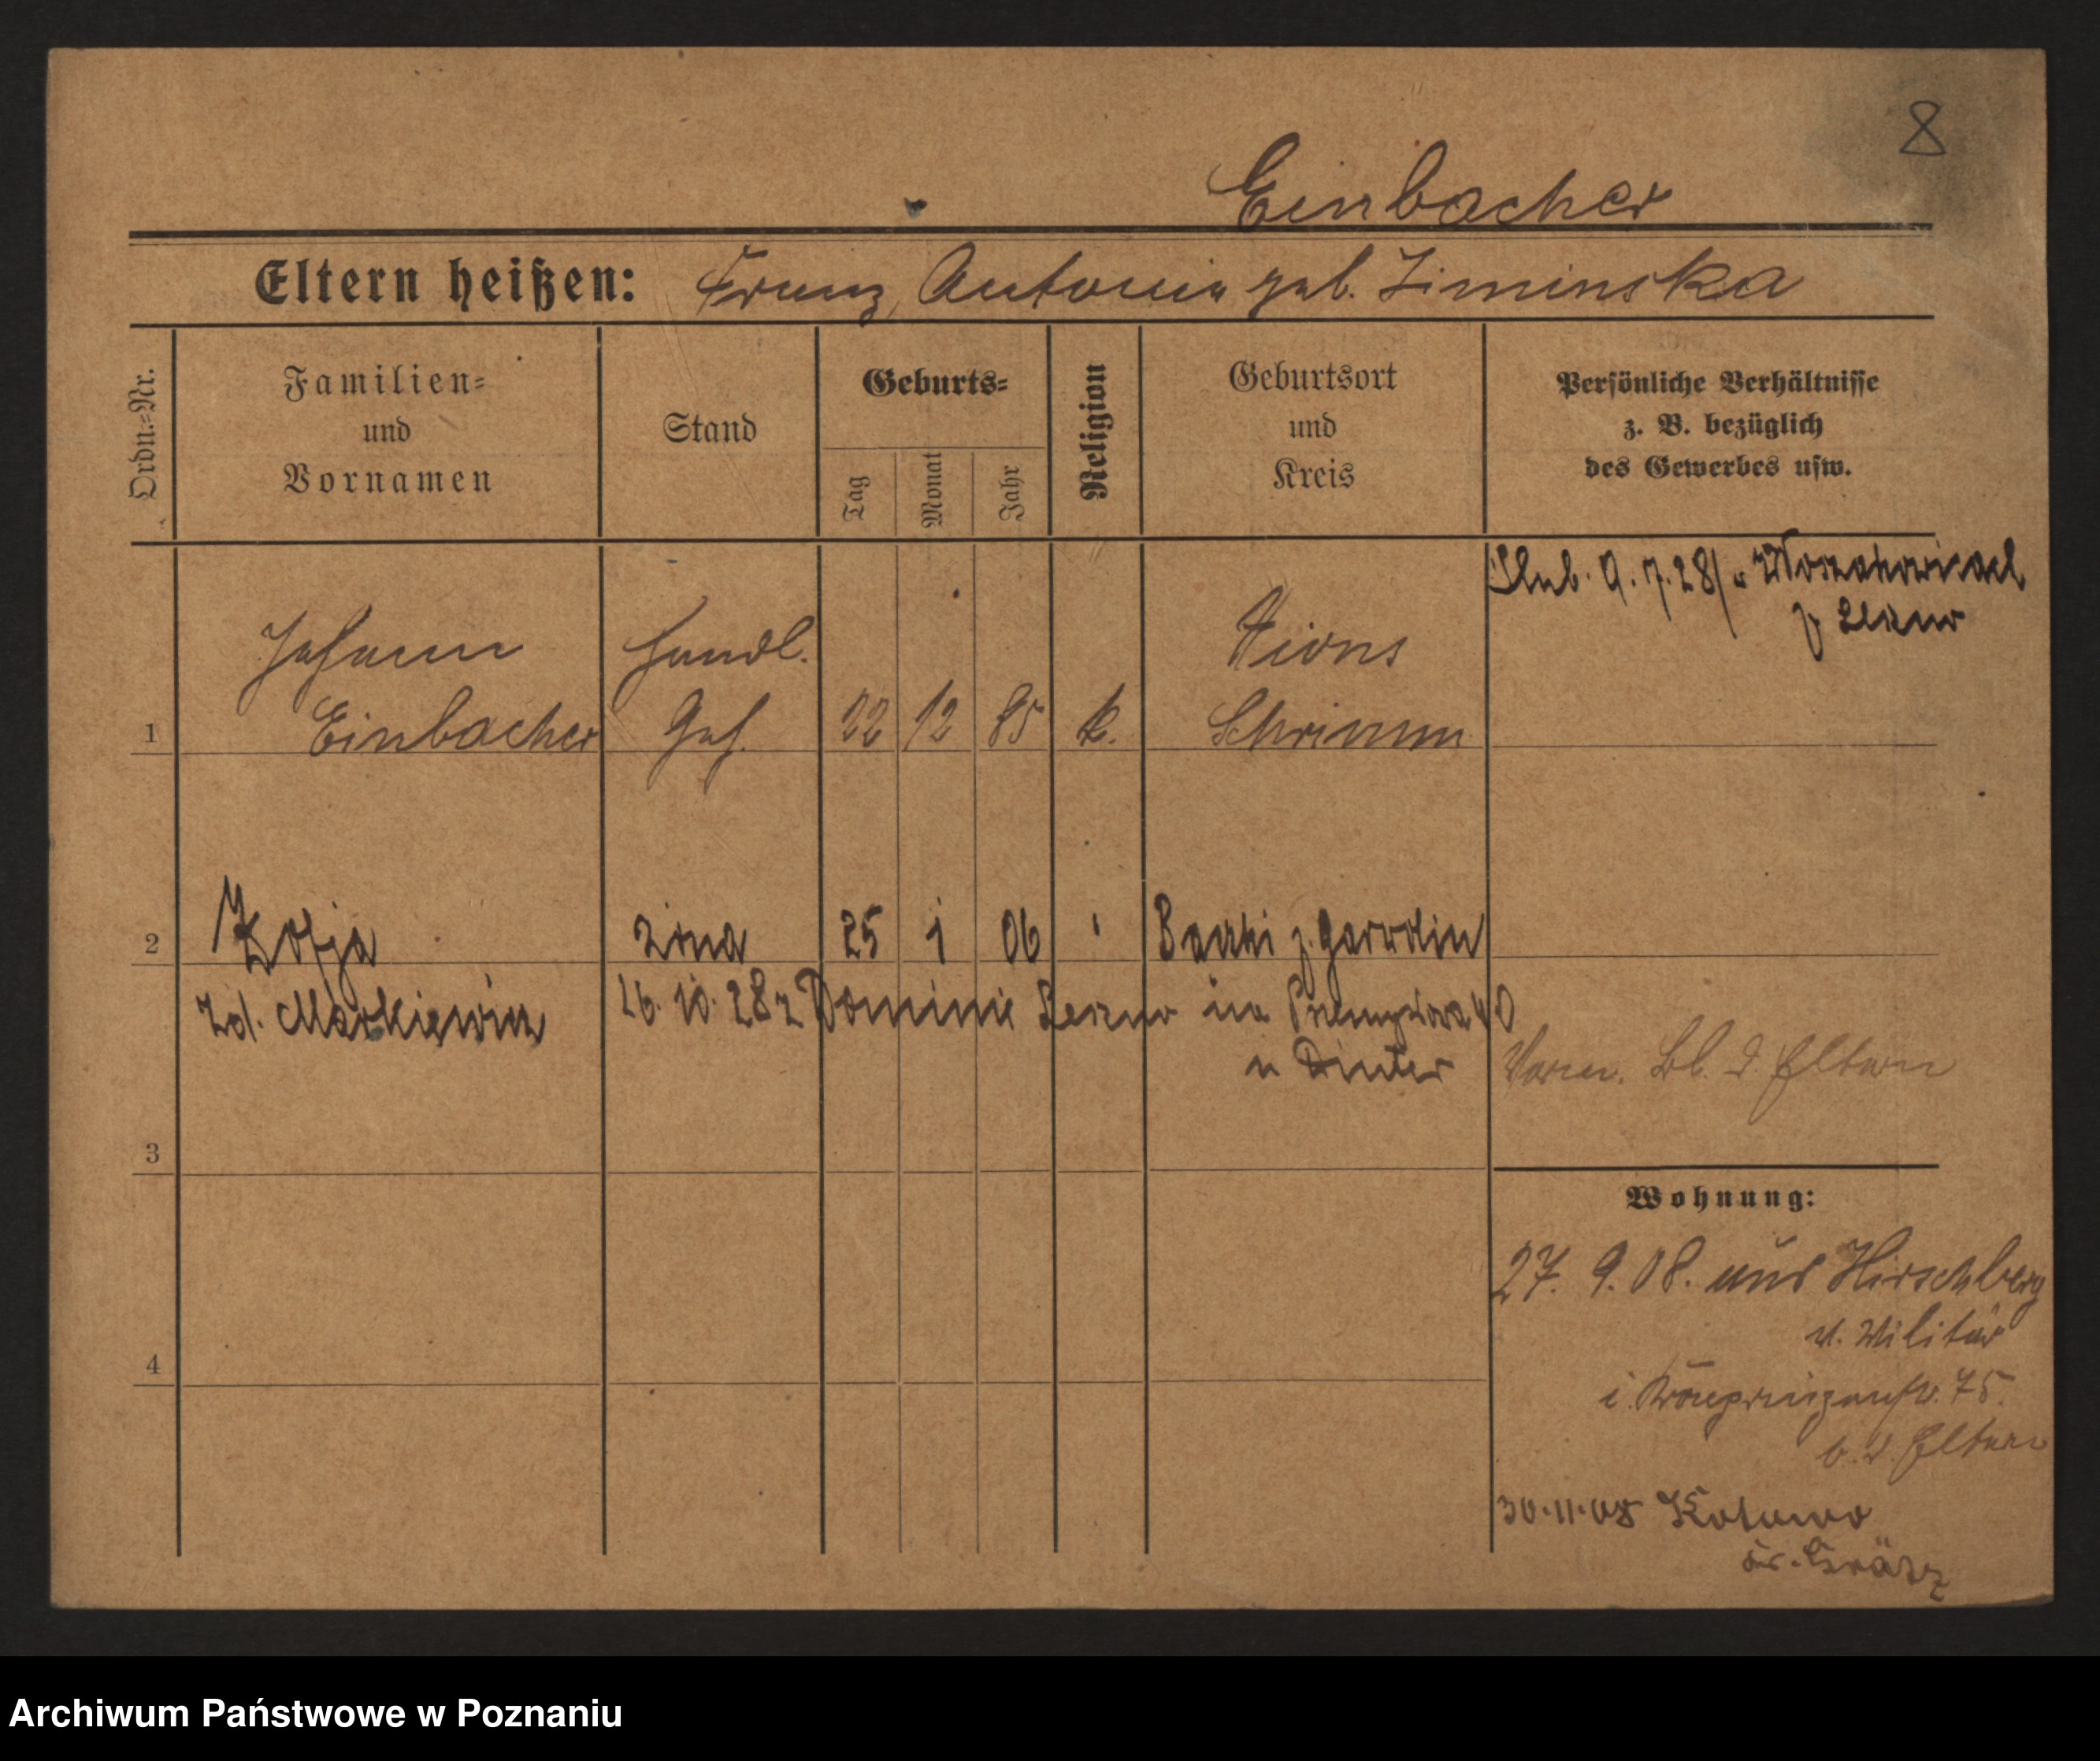 8
Einbacher
Eltern heißen: Franz, Antonia geb. Ziminska
Ordn.-Nr.
Familien-
und
Vornamen
Stand
Geburts-
Tag
Monat
Jahr
Religion
Geburtsort
und
Kreis
Persönliche Verhältnisse
z. B. bezüglich
des Gewerbes usw.
Ślub. 9.7.28
Johann
Einbacher
Handl.
Geh.
22 12 85 k.
Xions
Schrimm
1
2
Zofja
żona
25 1 06
Garwolin
Markiewicz
16.10.28 z Dominic na 40
u Dinter
b. d. Eltern
3
Wohnung:
27. 9. 08. aus Hirschberg
v. Militär
i. Kronprinzenstr. 75.
b. d. Eltern
4
30.11.08 Kotowo
Kr. Grätz
Archiwum Państwowe w Poznaniu